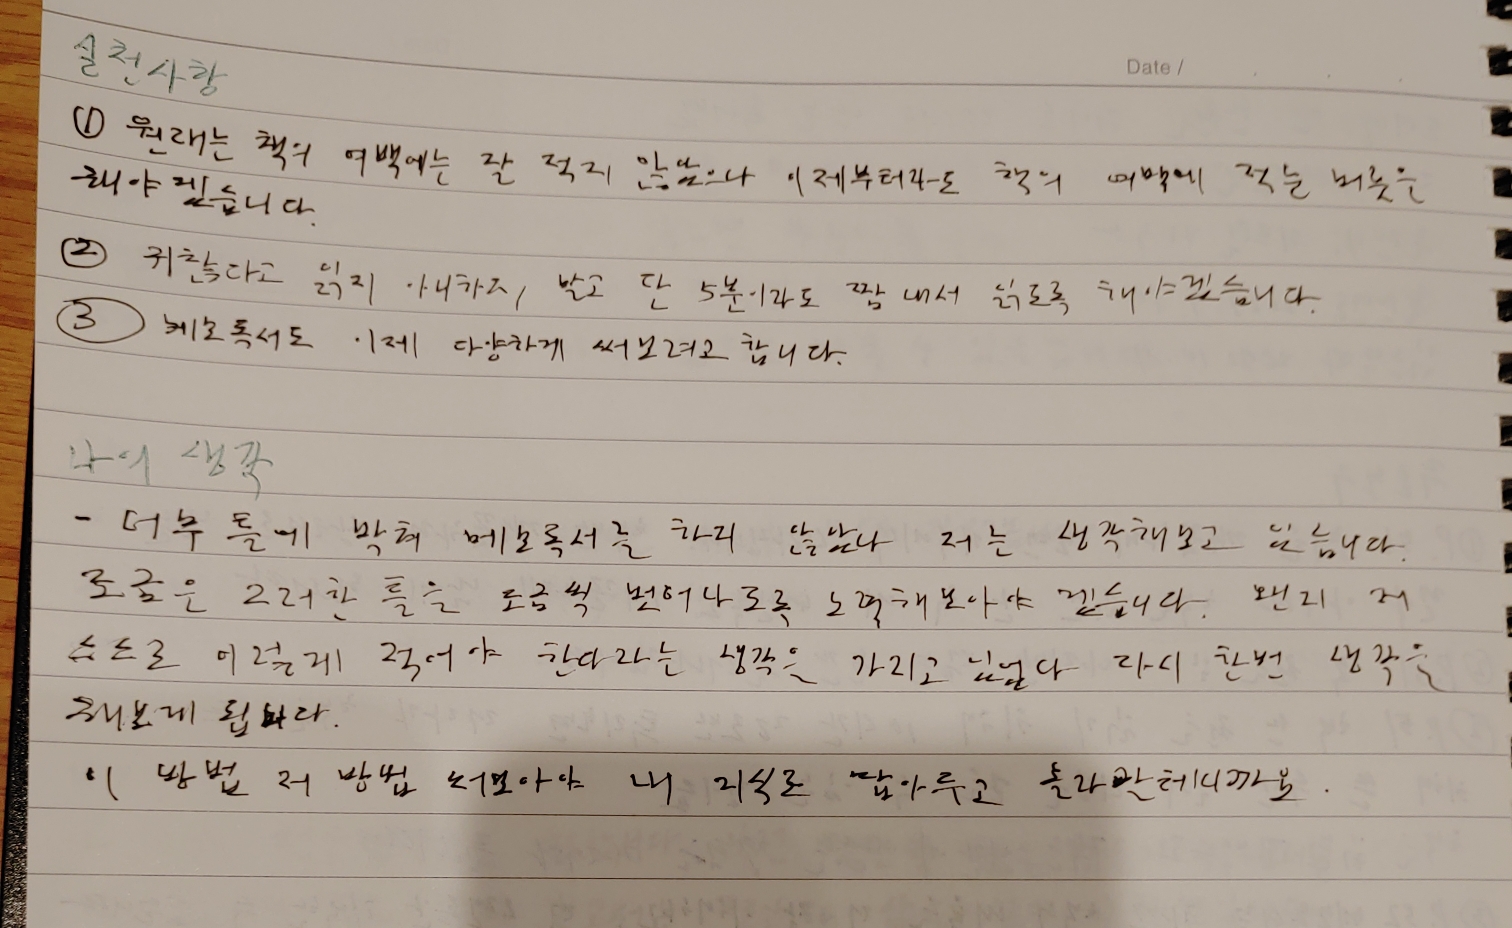 실천사항
Date /
① 원래는 책의 여백에는 잘 적지 않았으나 이제부터라도 책의 여백에 적는 버릇은
해야겠습니다.
② 귀찮다고 읽지 아니하지 말고 단 5분이라도 짬 내서 읽도록 해야겠습니다.
③ 메모독서도 이제 다양하게 써보려고 합니다.
나의 생각
- 너무 틀에 박혀 메모독서를 하지 않았나 저는 생각해보고 있습니다.
조금은 그러한 틀을 조금씩 벗어나도록 노력해보아야 겠습니다. 왠지 저
스스로 이렇게 적어야 한다라는 생각을 가지고 있었다 다시 한번 생각을
해보게 됩니다.
이 방법 저 방법 써보아야 내 지식로 담아두고